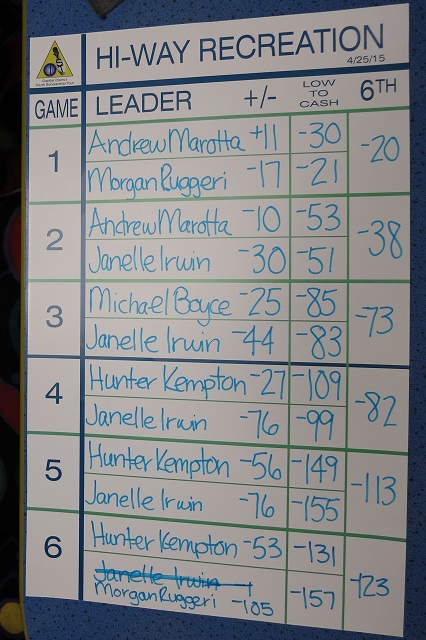 HI-WAY RECREATION
4/25/15
GAME LEADER +/- LOW TO CASH 6TH
1 Andrew Marotta +11 -30 -20
Morgan Ruggeri -17 -21
2 Andrew Marotta -10 -53 -38
Janelle Irwin -30 -51
3 Michael Boyce -25 -85 -73
Janelle Irwin -44 -83
4 Hunter Kempton -27 -109 -82
Janelle Irwin -76 -99
5 Hunter Kempton -56 -149 -113
Janelle Irwin -76 -155
6 Hunter Kempton -53 -131 -123
Janelle Irwin
Morgan Ruggeri -105 -157